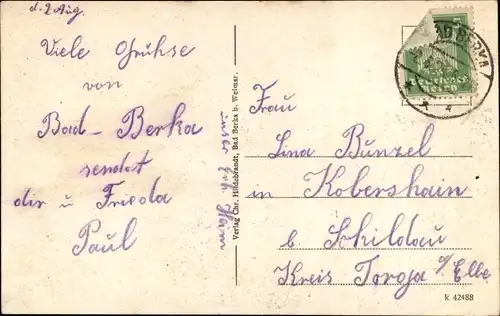 d. 2 Aug.
Viele Grühse
von
Bad-Berka
sendet
dir u Frieda
Paul
Verlag Chr. Hildebrandt, Bad Berka b. Weimar.
BAD BERKA
Frau
Lina Bunzel
in Kobershain
b. Schildau
Kreis Torgja a/Elbe
k 42488